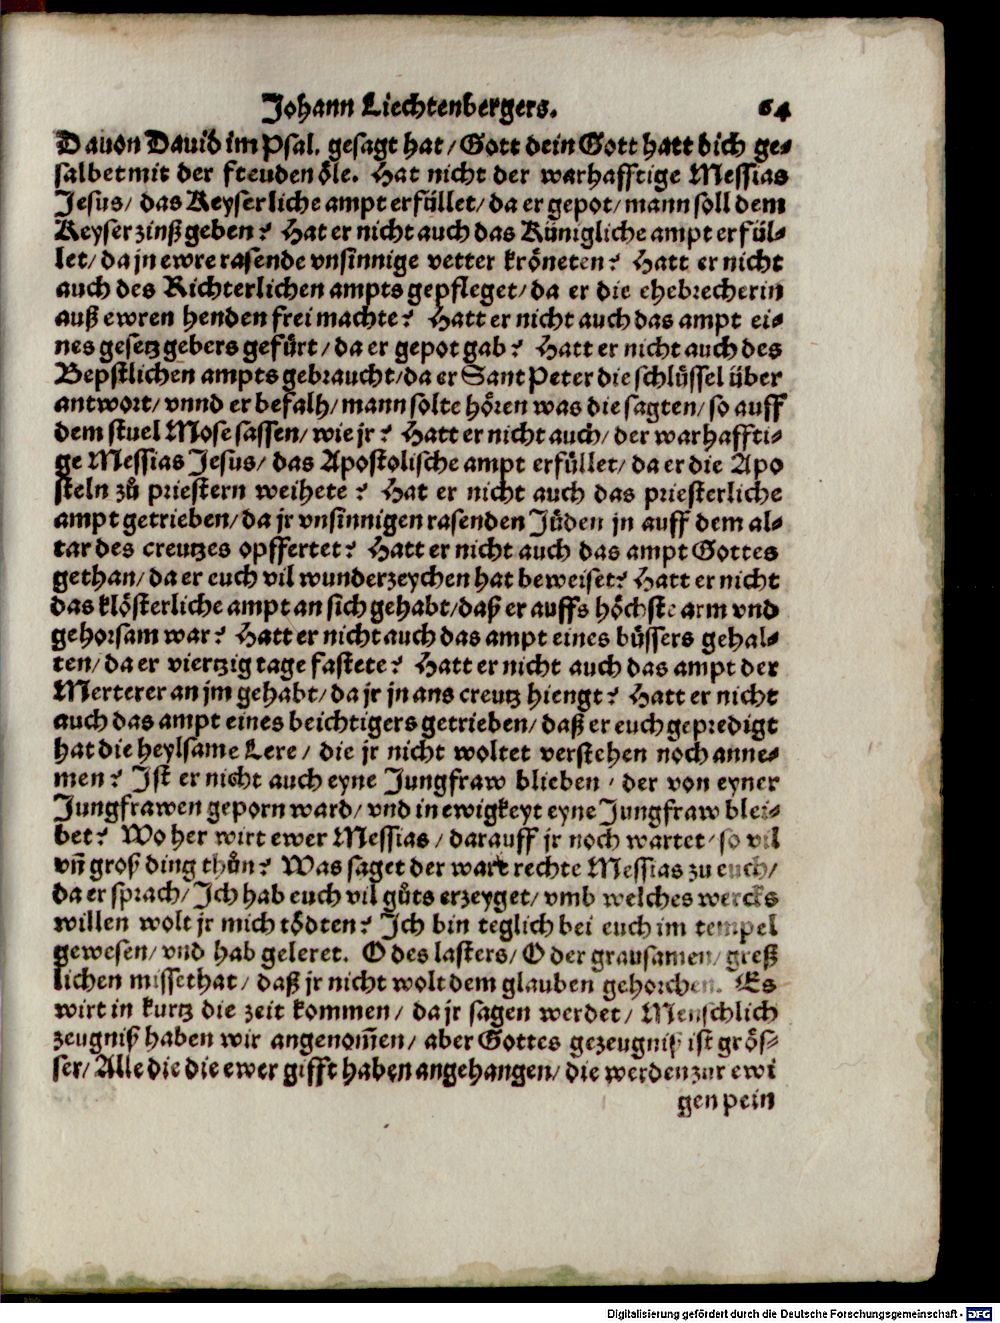 Johann Liechtenbergers. 64
Dauon Dauid im Psal. gesagt hat/ Gott dein Gott hatt dich ge-
salbet mit der freuden öle. Hat nicht der warhafftige Messias
Jesus/ das Keyserliche ampt erfüllet/ da er gepot/ mann soll dem
Keyser zinß geben? Hat er nicht auch das Künigliche ampt erfül-
let/ da jn ewre rasende vnsinnige vetter kröneten? Hatt er nicht
auch des Richterlichen ampts gepfleget/ da er die ehebrecherin
auß ewren henden frei machte? Hatt er nicht auch das ampt ei-
nes gesetz gebers gefürt/ da er gepot gab? Hatt er nicht auch des
Bepstlichen ampts gebraucht/ da er Sant Peter die schlüssel über
antwort/ vnnd er befalh/ mann solte hören was die sagten/ so auff
dem stuel Mose sassen/ wie jr? Hatt er nicht auch/ der warhaffti-
ge Messias Jesus/ das Apostolische ampt erfüllet/ da er die Apo
steln zů priestern weihete? Hat er nicht auch das priesterliche
ampt getrieben/ da jr vnsinnigen rasenden Jüden jn auff dem al-
tar des creutzes opffertet? Hatt er nicht auch das ampt Gottes
gethan/ da er euch vil wunderzeychen hat beweiset? Hatt er nicht
das klösterliche ampt an sich gehabt/ daß er auffs höchste arm vnd
gehorsam war? Hatt er nicht auch das ampt eines büssers gehal-
ten/ da er viertzig tage fastete? Hatt er nicht auch das ampt der
Merterer an jm gehabt/ da jr jn ans creutz hiengt? Hatt er nicht
auch das ampt eines beichtigers getrieben/ daß er euch gepredigt
hat die heylsame Lere/ die jr nicht woltet verstehen noch anne-
men? Ist er nicht auch eyne Jungfraw blieben/ der von eyner
Jungfrawen geporn ward/ vnd in ewigkeyt eyne Jungfraw blei-
bet? Wo her wirt ewer Messias/ darauff jr noch wartet/ so vil
vn̄ groß ding thůn? Was saget der wart rechte Messias zu euch/
da er sprach/ Ich hab euch vil gůts erzeyget/ vmb welches wercks
willen wolt jr mich tödten? Ich bin teglich bei euch im tempel
gewesen/ vnd hab geleret. O des lasters/ O der grausamen/ greß
lichen missethat/ daß jr nicht wolt dem glauben gehorchen. Es
wirt in kurtz die zeit kommen/ da jr sagen werdet/ Menschlich
zeugniß haben wir angenom̄en/ aber Gottes gezeugniß ist grös-
ser/ Alle die die ewer gifft haben angehangen/ die werden zur ewi
gen pein
Digitalisierung gefördert durch die Deutsche Forschungsgemeinschaft - DFG